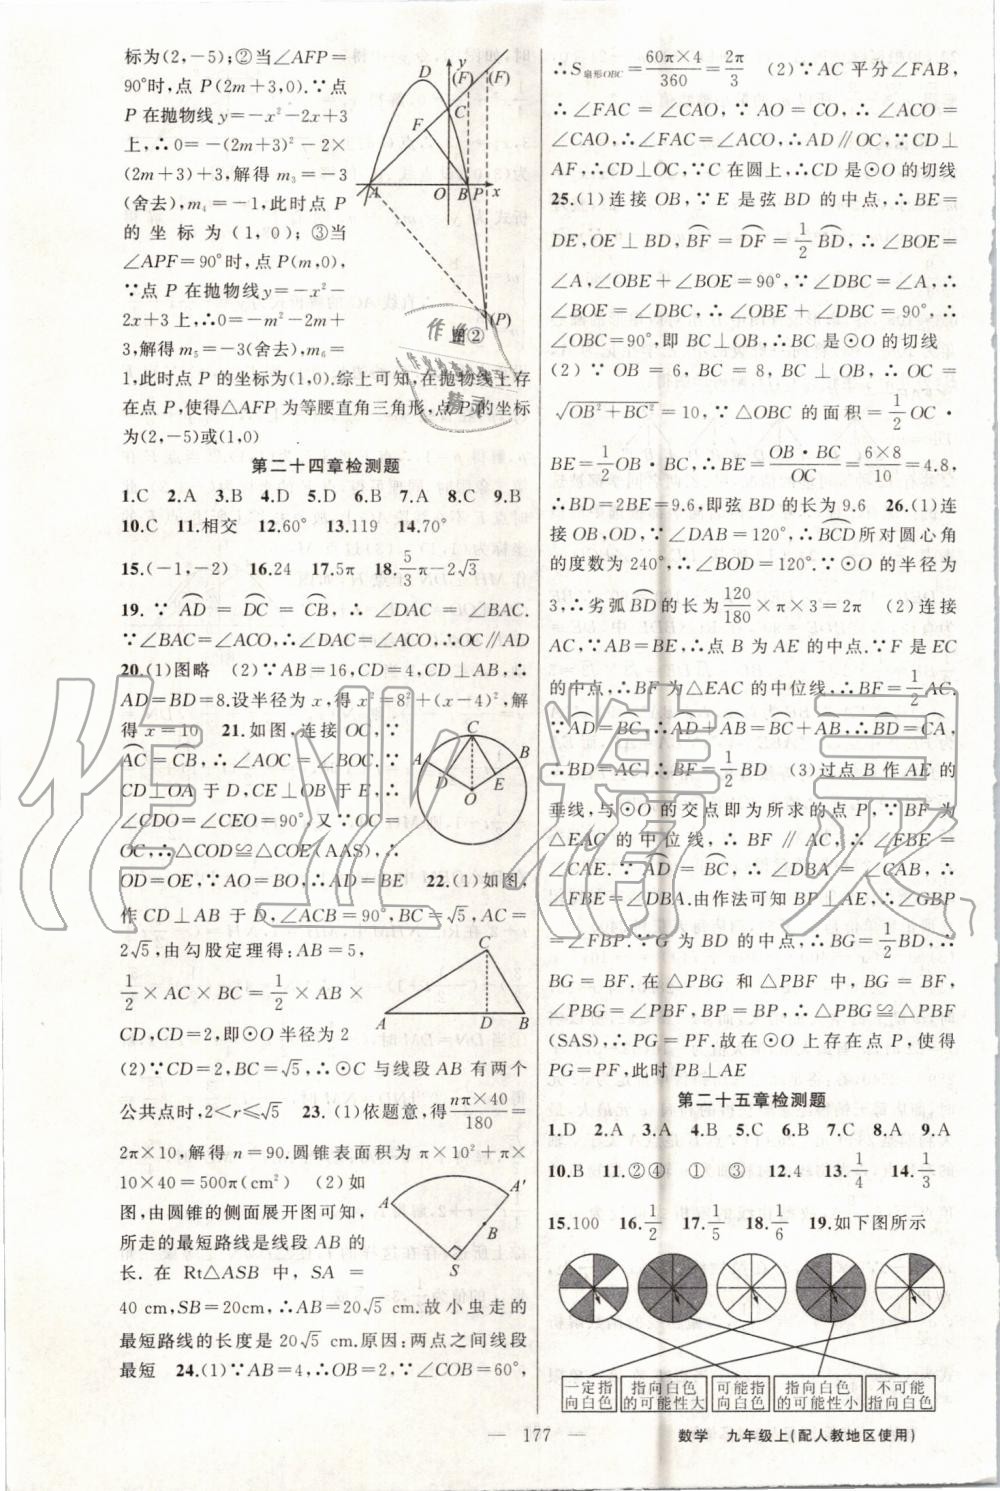 标为(2,-5);②当∠AFP=
90°时,点 P(2m+3,0).∵点
P 在抛物线 y=-x²-2x+3
上,∴0=-(2m+3)²-2×
(2m+3)+3,解得 m₃=-3
(舍去),m₄=-1,此时点 P
的坐标为(1,0);③当
∠APF=90°时,点 P(m,0),
∵点 P 在抛物线 y=-x²-
2x+3 上,∴0=-m²-2m+
3,解得 m₅=-3(舍去),m₆=
1,此时点 P 的坐标为(1,0).综上可知,在抛物线上存
在点 P,使得△AFP 为等腰直角三角形,点 P 的坐标
为(2,-5)或(1,0)
y
D
(F)
(F)
C
F
A
O
B
P
x
(P)
图②
第二十四章检测题
1.C 2.A 3.B 4.D 5.D 6.B 7.A 8.C 9.B
10.C 11.相交 12.60° 13.119 14.70°
15.(-1,-2) 16.24 17.5π 18.5/3π-2√3
19.∵⌒AD=⌒DC=⌒CB,∴∠DAC=∠BAC.
∵∠BAC=∠ACO,∴∠DAC=∠ACO,∴OC∥AD
20.(1)图略 (2)∵AB=16,CD=4,CD⊥AB,∴
AD=BD=8.设半径为 x,得 x²=8²+(x-4)²,解
得 x=10 21.如图,连接 OC,∵
⌒AC=⌒CB,∴∠AOC=∠BOC.∵
CD⊥OA 于 D,CE⊥OB 于 E,∴
∠CDO=∠CEO=90°,又∵OC=
OC,∴△COD≌△COE(AAS),∴
OD=OE,∵AO=BO,∴AD=BE 22.(1)如图,
C
A
B
D
E
O
作 CD⊥AB 于 D,∠ACB=90°,BC=√5,AC=
2√5,由勾股定理得:AB=5,
1/2×AC×BC=1/2×AB×
CD,CD=2,即⊙O 半径为 2
C
A
D
B
(2)∵CD=2,BC=√5,∴⊙C 与线段 AB 有两个
公共点时,2<r≤√5 23.(1)依题意,得nπ×40/180=
2π×10,解得 n=90.圆锥表面积为 π×10²+π×
10×40=500π(cm²) (2)如
图,由圆锥的侧面展开图可知,
所走的最短路线是线段 AB 的
长.在 Rt△ASB 中,SA=
40 cm,SB=20cm,∴AB=20√5 cm.故小虫走的
最短路线的长度是 20√5 cm.原因:两点之间线段
最短 24.(1)∵AB=4,∴OB=2,∵∠COB=60°,
A
A′
B
S
∴S扇形OBC=60π×4/360=2π/3 (2)∵AC 平分∠FAB,
∴∠FAC=∠CAO,∵AO=CO,∴∠ACO=
∠CAO,∴∠FAC=∠ACO,∴AD∥OC,∵CD⊥
AF,∴CD⊥OC,∵C 在圆上,∴CD 是⊙O 的切线
25.(1)连接 OB,∵E 是弦 BD 的中点,∴BE=
DE,OE⊥BD,⌒BF=⌒DF=1/2⌒BD,∴∠BOE=
∠A,∠OBE+∠BOE=90°,∵∠DBC=∠A,∴
∠BOE=∠DBC,∴∠OBE+∠DBC=90°,∴
∠OBC=90°,即 BC⊥OB,∴BC 是⊙O 的切线
(2)∵OB=6,BC=8,BC⊥OB,∴OC=
√OB²+BC²=10,∵△OBC 的面积=1/2OC·
BE=1/2OB·BC,∴BE=OB·BC/OC=6×8/10=4.8,
∴BD=2BE=9.6,即弦 BD 的长为 9.6 26.(1)连
接 OB,OD,∵∠DAB=120°,∴⌒BCD所对圆心角
的度数为 240°,∴∠BOD=120°.∵⊙O 的半径为
3,∴劣弧⌒BD的长为120/180×π×3=2π (2)连接
AC,∵AB=BE,∴点 B 为 AE 的中点.∵F 是 EC
的中点,∴BF 为△EAC 的中位线,∴BF=1/2AC,
∵⌒AD=⌒BC,∴⌒AD+⌒AB=⌒BC+⌒AB,∴⌒BD=⌒CA,
∴BD=AC,∴BF=1/2BD (3)过点 B 作 AE 的
垂线,与⊙O 的交点即为所求的点 P,∵BF 为
△EAC 的中位线,∴BF∥AC,∴∠FBE=
∠CAE.∵⌒AD=⌒BC,∴∠DBA=∠CAB,∴
∠FBE=∠DBA.由作法可知 BP⊥AE,∴∠GBP
=∠FBP.∵G 为 BD 的中点,∴BG=1/2BD,∴
BG=BF.在△PBG 和△PBF 中,BG=BF,
∠PBG=∠PBF,BP=BP,∴△PBG≌△PBF
(SAS),∴PG=PF.故在⊙O 上存在点 P,使得
PG=PF,此时 PB⊥AE
第二十五章检测题
1.D 2.A 3.A 4.B 5.C 6.B 7.C 8.A 9.A
10.B 11.②④ ① ③ 12.4 13.1/4 14.1/3
15.100 16.1/2 17.1/5 18.1/6 19.如下图所示
一定指向白色
指向白色的可能性大
可能指向白色
指向白色的可能性小
不可能指向白色
177
数学 九年级上(配人教地区使用)
作业精灵